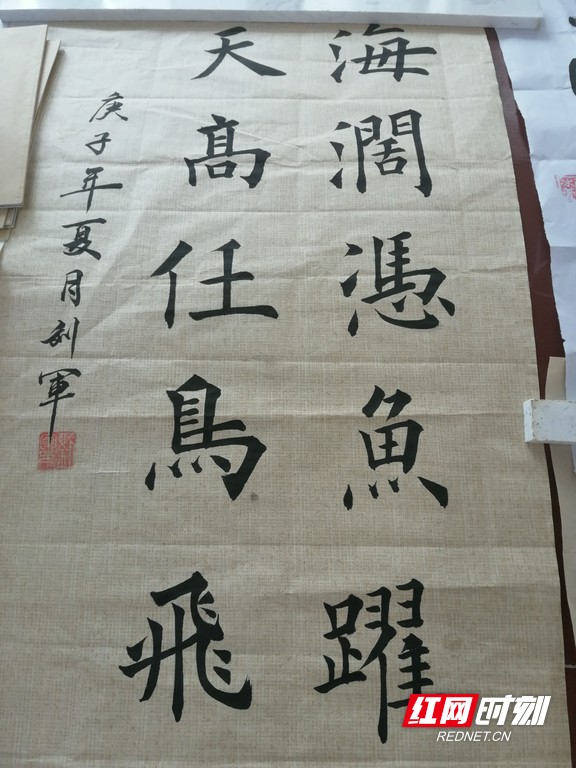 海濶憑魚躍
天高任鳥飛
庚子年夏月利軍
红网时刻
REDNET.CN